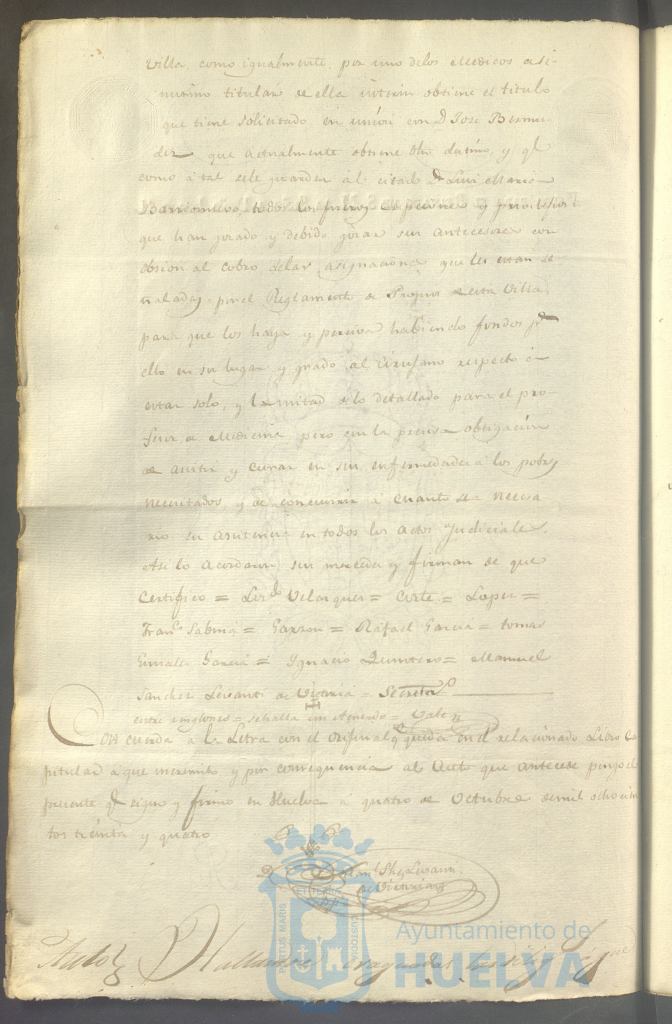 Villa, como igualmente, por uno de los Medicos asi-
mismo titular de ella interin obtiene el titulo
que tiene solicitado en union con D. Jose Bermu-
dez que actualmente obtiene dho destino, y qe
como á tal se le guarden al citado Dn Luis Maria
Barrionuevo todos los fueros esepciones y privilegios
que han gozado y debido gozar sus antecesores con
obsion al cobro de las asignaciones que les estan se-
ñaladas por el Reglamento de Propios de esta Villa,
para que los haya y perciva habiendo fondos pa
ello en su lugar y grado, al Cirujano respecto á
estar solo, y la mitad de lo detallado para el pro-
fesor de Medicina pero con la precisa obligacion
de asistir y curar en sus enfermedades á los pobres
necesitados, y de concurrir á cuanto sea necesa
rio su asistencia en todos los actos Judiciales.
Asi lo acordaron sus mercedes y firman de que
Certifico = Licdo Velazquez = Corte = Lopez =
Franco Sabina = Garzon = Rafael Garcia = tomas
Garcia = Ignacio Quintero = Manuel
Sanchez Levanti de Victoria = Secreto
entre renglones = se halla un Acuerdo = Vale
Concuerda á la Letra con el original qe queda en el relacionado Libro Ca
pitular á que me remito, y por consequencia al Auto que antecede pongo el
presente qe signo y firmo en Huelva á quatro de Octubre de mil ochocien
tos treinta y quatro
Manl Shez Levanti
de Victoria
Auto
Ayuntamiento de
HUELVA
PORTUS MARIS
ET TERRAE
CUSTODIA